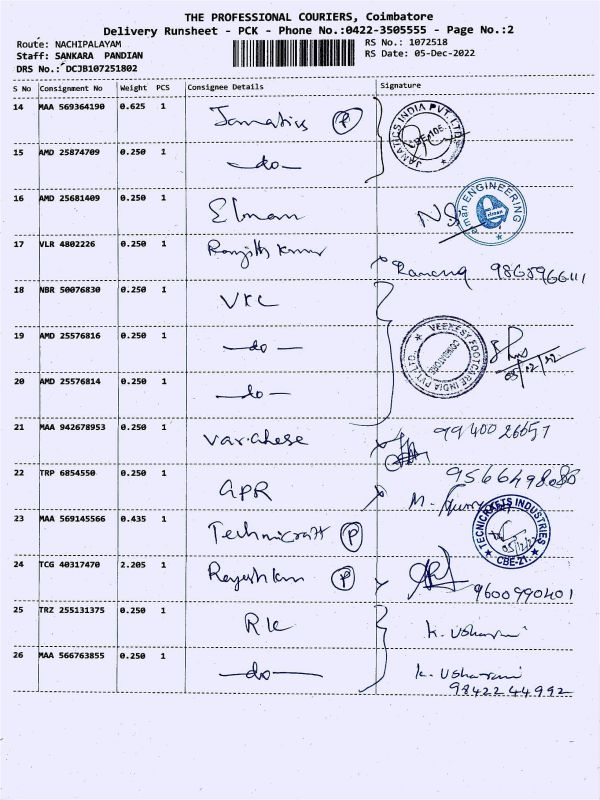 THE PROFESSIONAL COURIERS, Coimbatore
Delivery Runsheet - PCK - Phone No.:0422-3505555 - Page No.:2
Route: NACHIPALAYAM
RS No.: 1072518
Staff: SANKARA PANDIAN
RS Date: 05-Dec-2022
DRS No.: DCJB107251802
S No Consignment No Weight PCS Consignee Details Signature
14 MAA 569364190 0.625 1 Jamatics P
JANATICS INDIA PVT. LTD. CBE-105.
15 AMD 25874709 0.250 1 -do-
16 AMD 25681409 0.250 1 Elman
ENGINEERING
17 VLR 4802226 0.250 1 Ranjith Kumar
18 NBR 50076830 0.250 1 VKC
19 AMD 25576816 0.250 1 -do-
VEEKESY FOOTCARE INDIA PVT. LTD. COIMBATORE
05/12/22
20 AMD 25576814 0.250 1 -do-
21 MAA 942678953 0.250 1 Varghese 9940026657
22 TRP 6854550 0.250 1 GPR 9566498080
23 MAA 569145566 0.435 1 Technicraft P
TECNICRAFTS INDUSTRIES CBE-21.
24 TCG 40317470 2.205 1 P 9600990401
25 TRZ 255131375 0.250 1 RK K. Usharani
26 MAA 566763855 0.250 1 -do- K. Usharani
9842244992